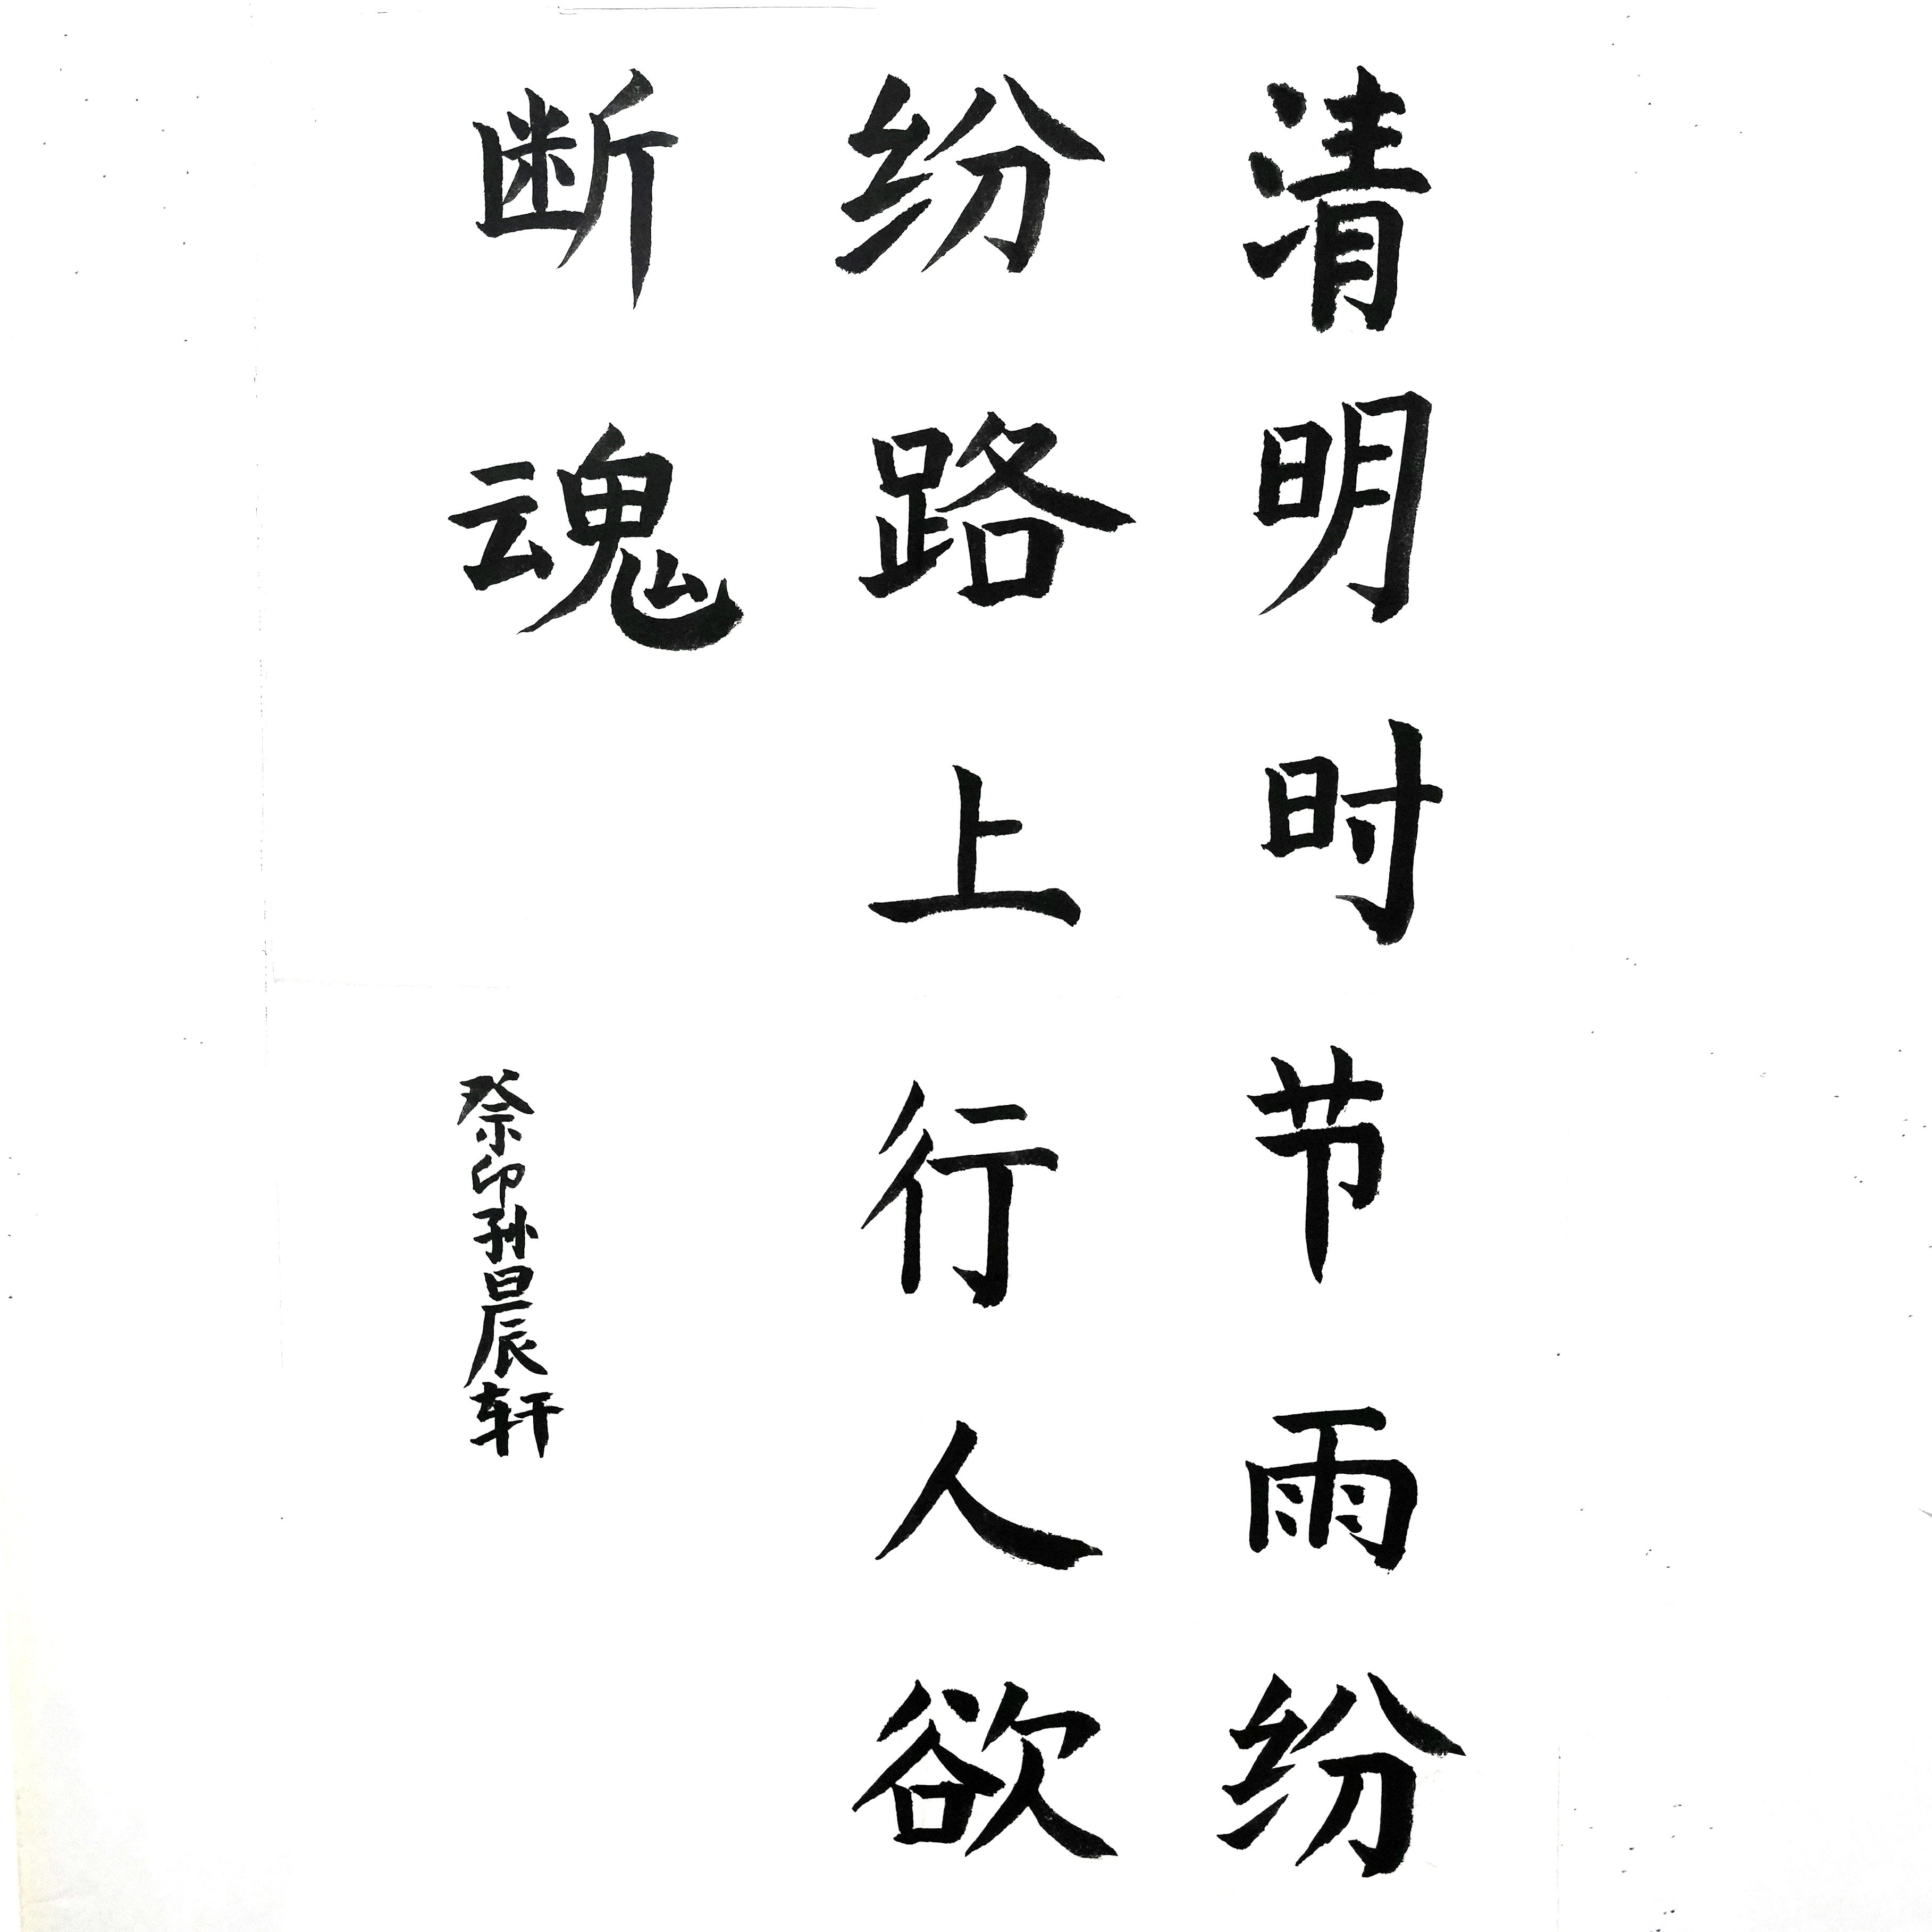 清明时节雨纷
纷路上行人欲
断魂
癸卯孙晨轩